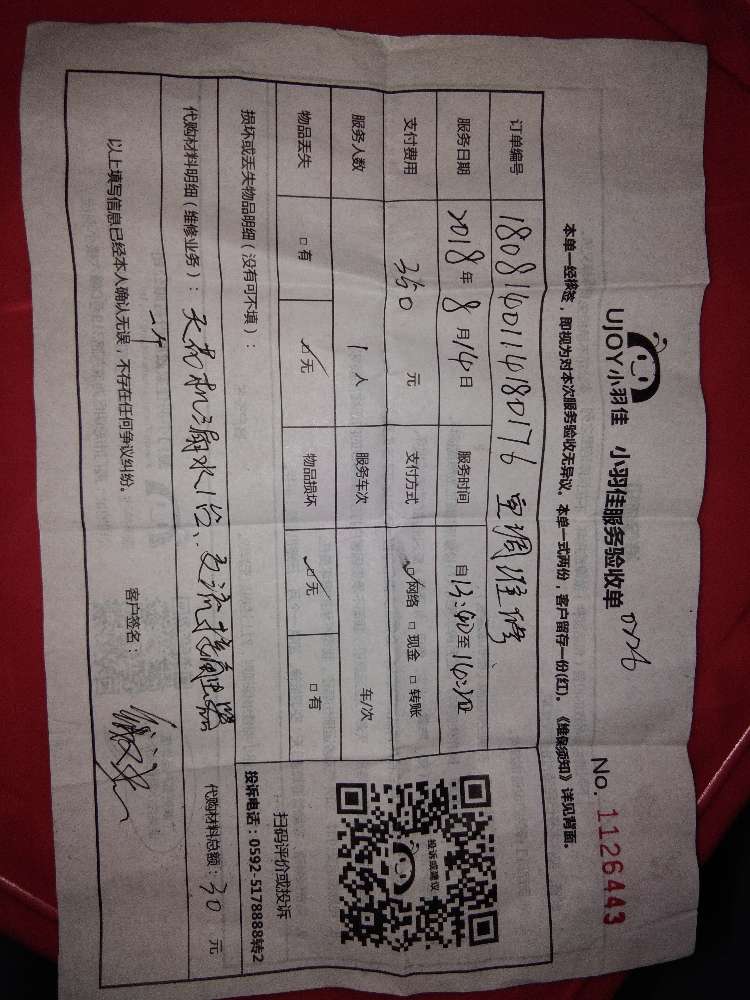 UJOY小羽佳 小羽佳服务验收单
No. 1126443
本单一经核签，即视为对本次服务验收无异议。本单一式两份，客户留存一份(红)。《维保须知》详见背面。
订单编号 180814011418017 6 空调维修
服务日期 2018 年 8 月 14 日 服务时间 自 13:40 至
支付费用 350 元 支付方式 ☑网络 □ 现金 □ 转账
服务人数 1 人 服务车次 车/次
物品丢失 □ 有 ☑无 物品损坏 ☑无 □ 有
损坏或丢失物品明细（没有可不填）：
代购材料明细（维修业务）： 天花机 1台、交流接触器
一个
代购材料总额：30 元
以上填写信息已经本人确认无误，不存在任何争议纠纷。 客户签名：
投诉或建议
扫码评价或投诉
投诉电话：0592-5178888转2